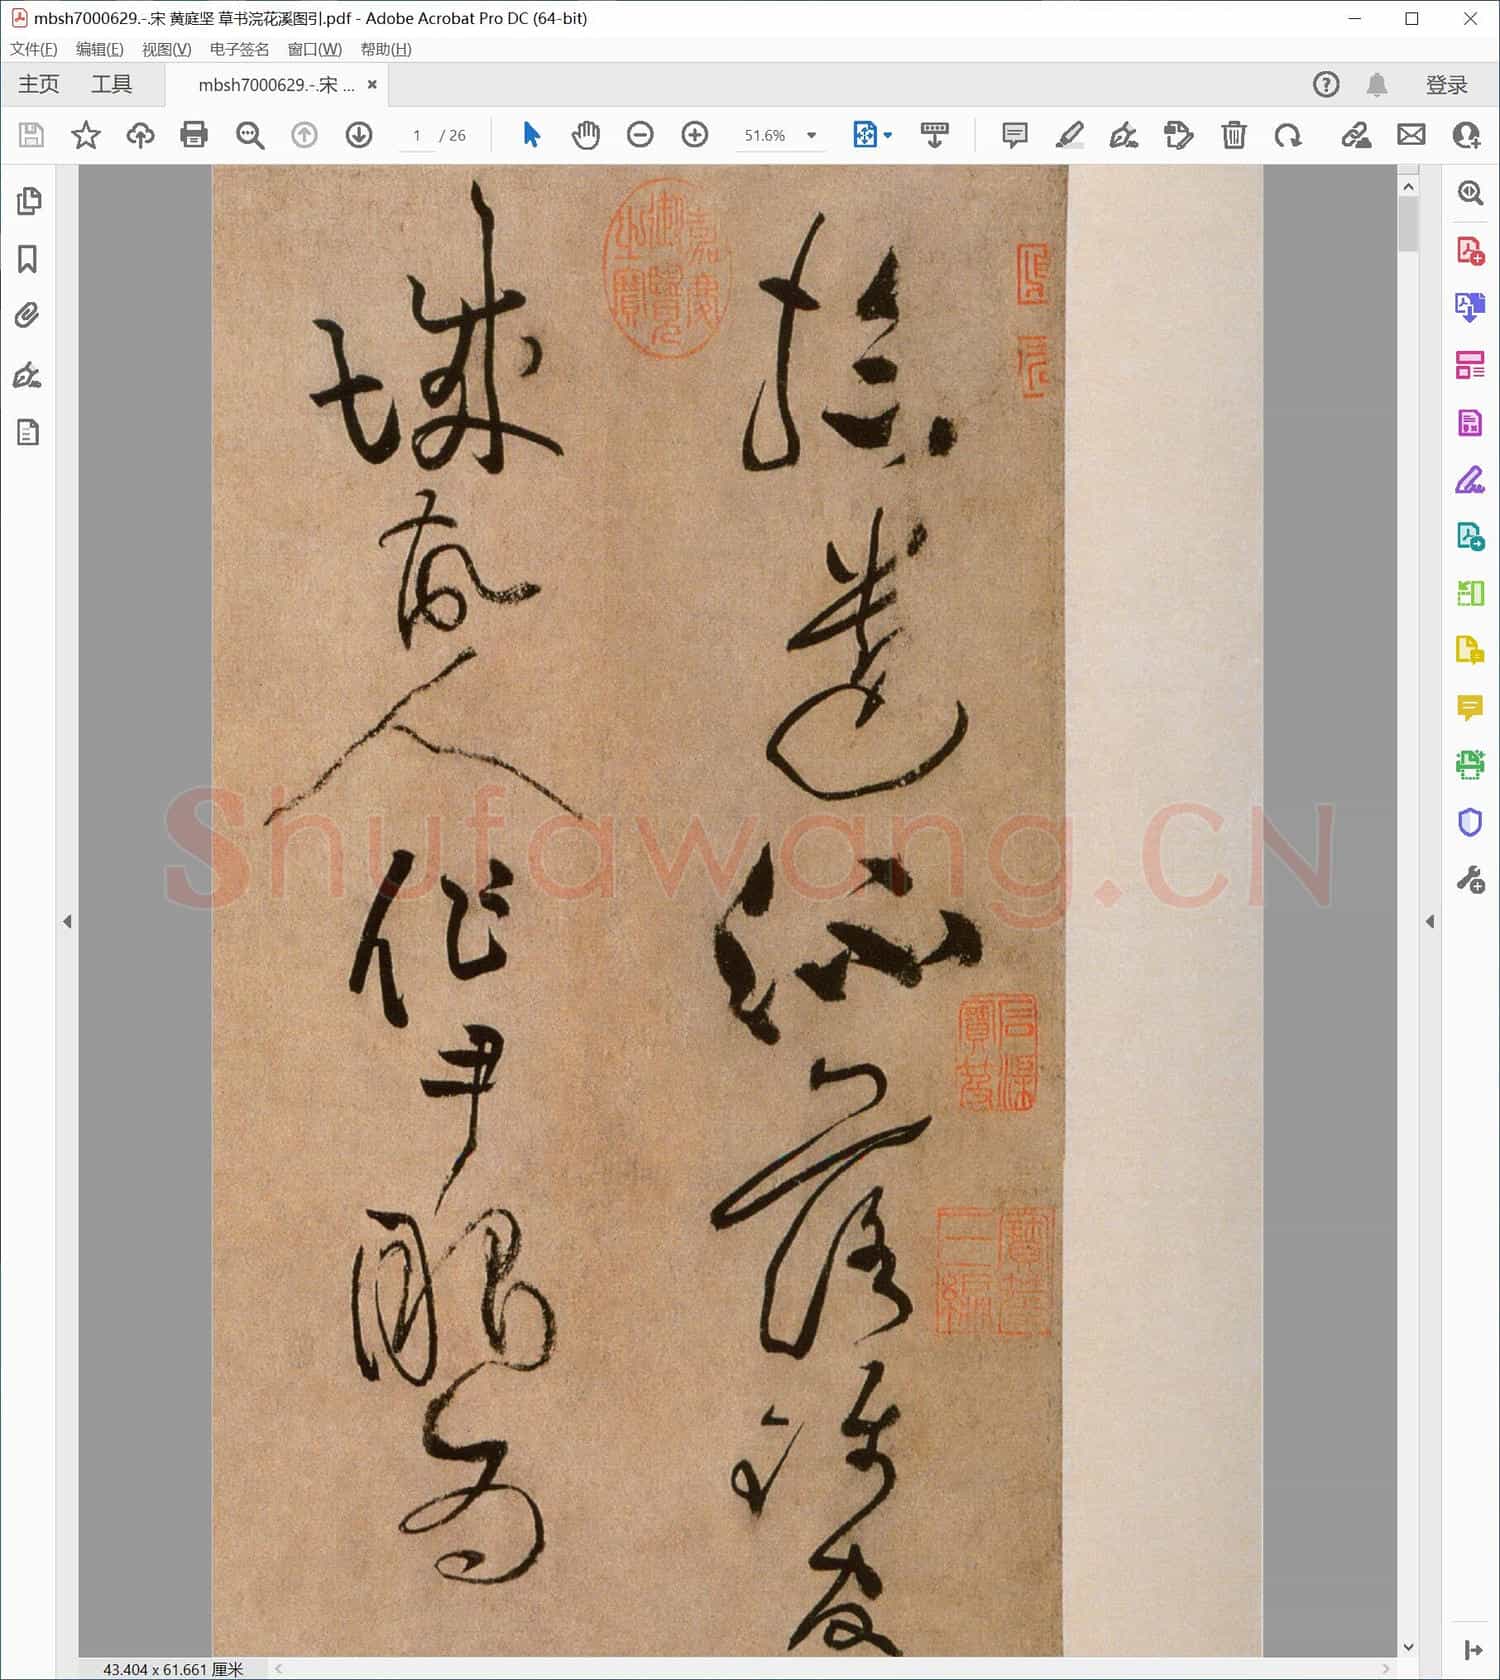 mbsh7000629.-.宋 黄庭坚 草书浣花溪图引.pdf - Adobe Acrobat Pro DC (64-bit)
文件(F) 编辑(E) 视图(V) 电子签名 窗口(W) 帮助(H)
主页 工具 mbsh7000629.-.宋 ... 登录
1 / 26 51.6%
拾遺流落錦官
城故人作尹眼為
嘉慶御覽之寶
石渠寶笈
寶笈三編
Shufawang.CN
43.404 x 61.661 厘米